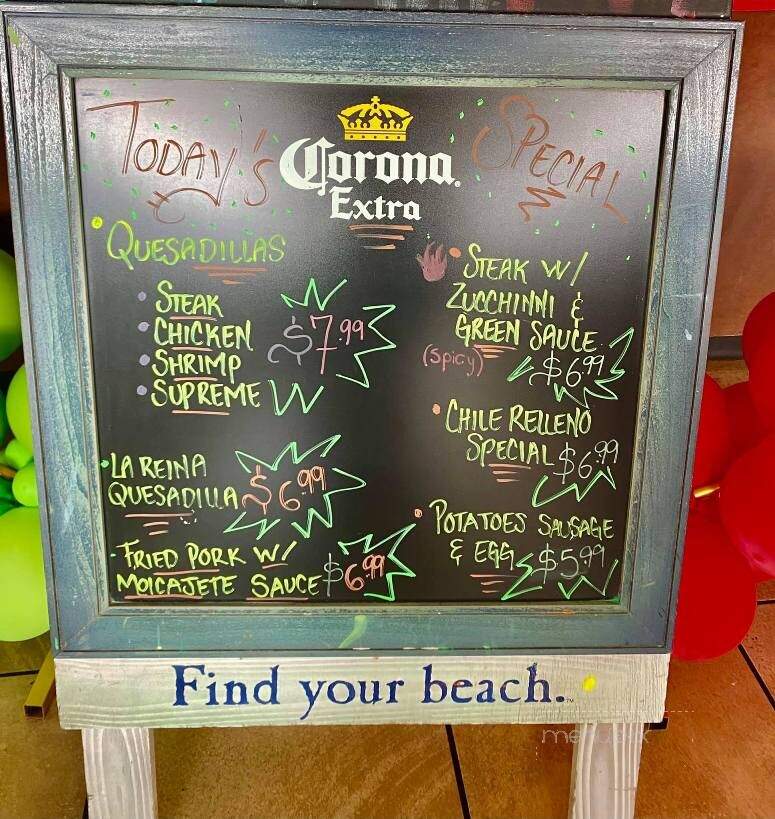 TODAY'S
Corona.
Extra
SPECIAL
QUESADILLAS
• STEAK
• CHICKEN
• SHRIMP
• SUPREME
$7.99
• LA REINA
QUESADILLA $6.99
- FRIED PORK W/
MOLCAJETE SAUCE $6.99
• STEAK W/
ZUCCHINNI &
GREEN SAUCE.
(Spicy) $6.99
• CHILE RELLENO
SPECIAL $6.99
• POTATOES SAUSAGE
& EGG $5.99
Find your beach.™